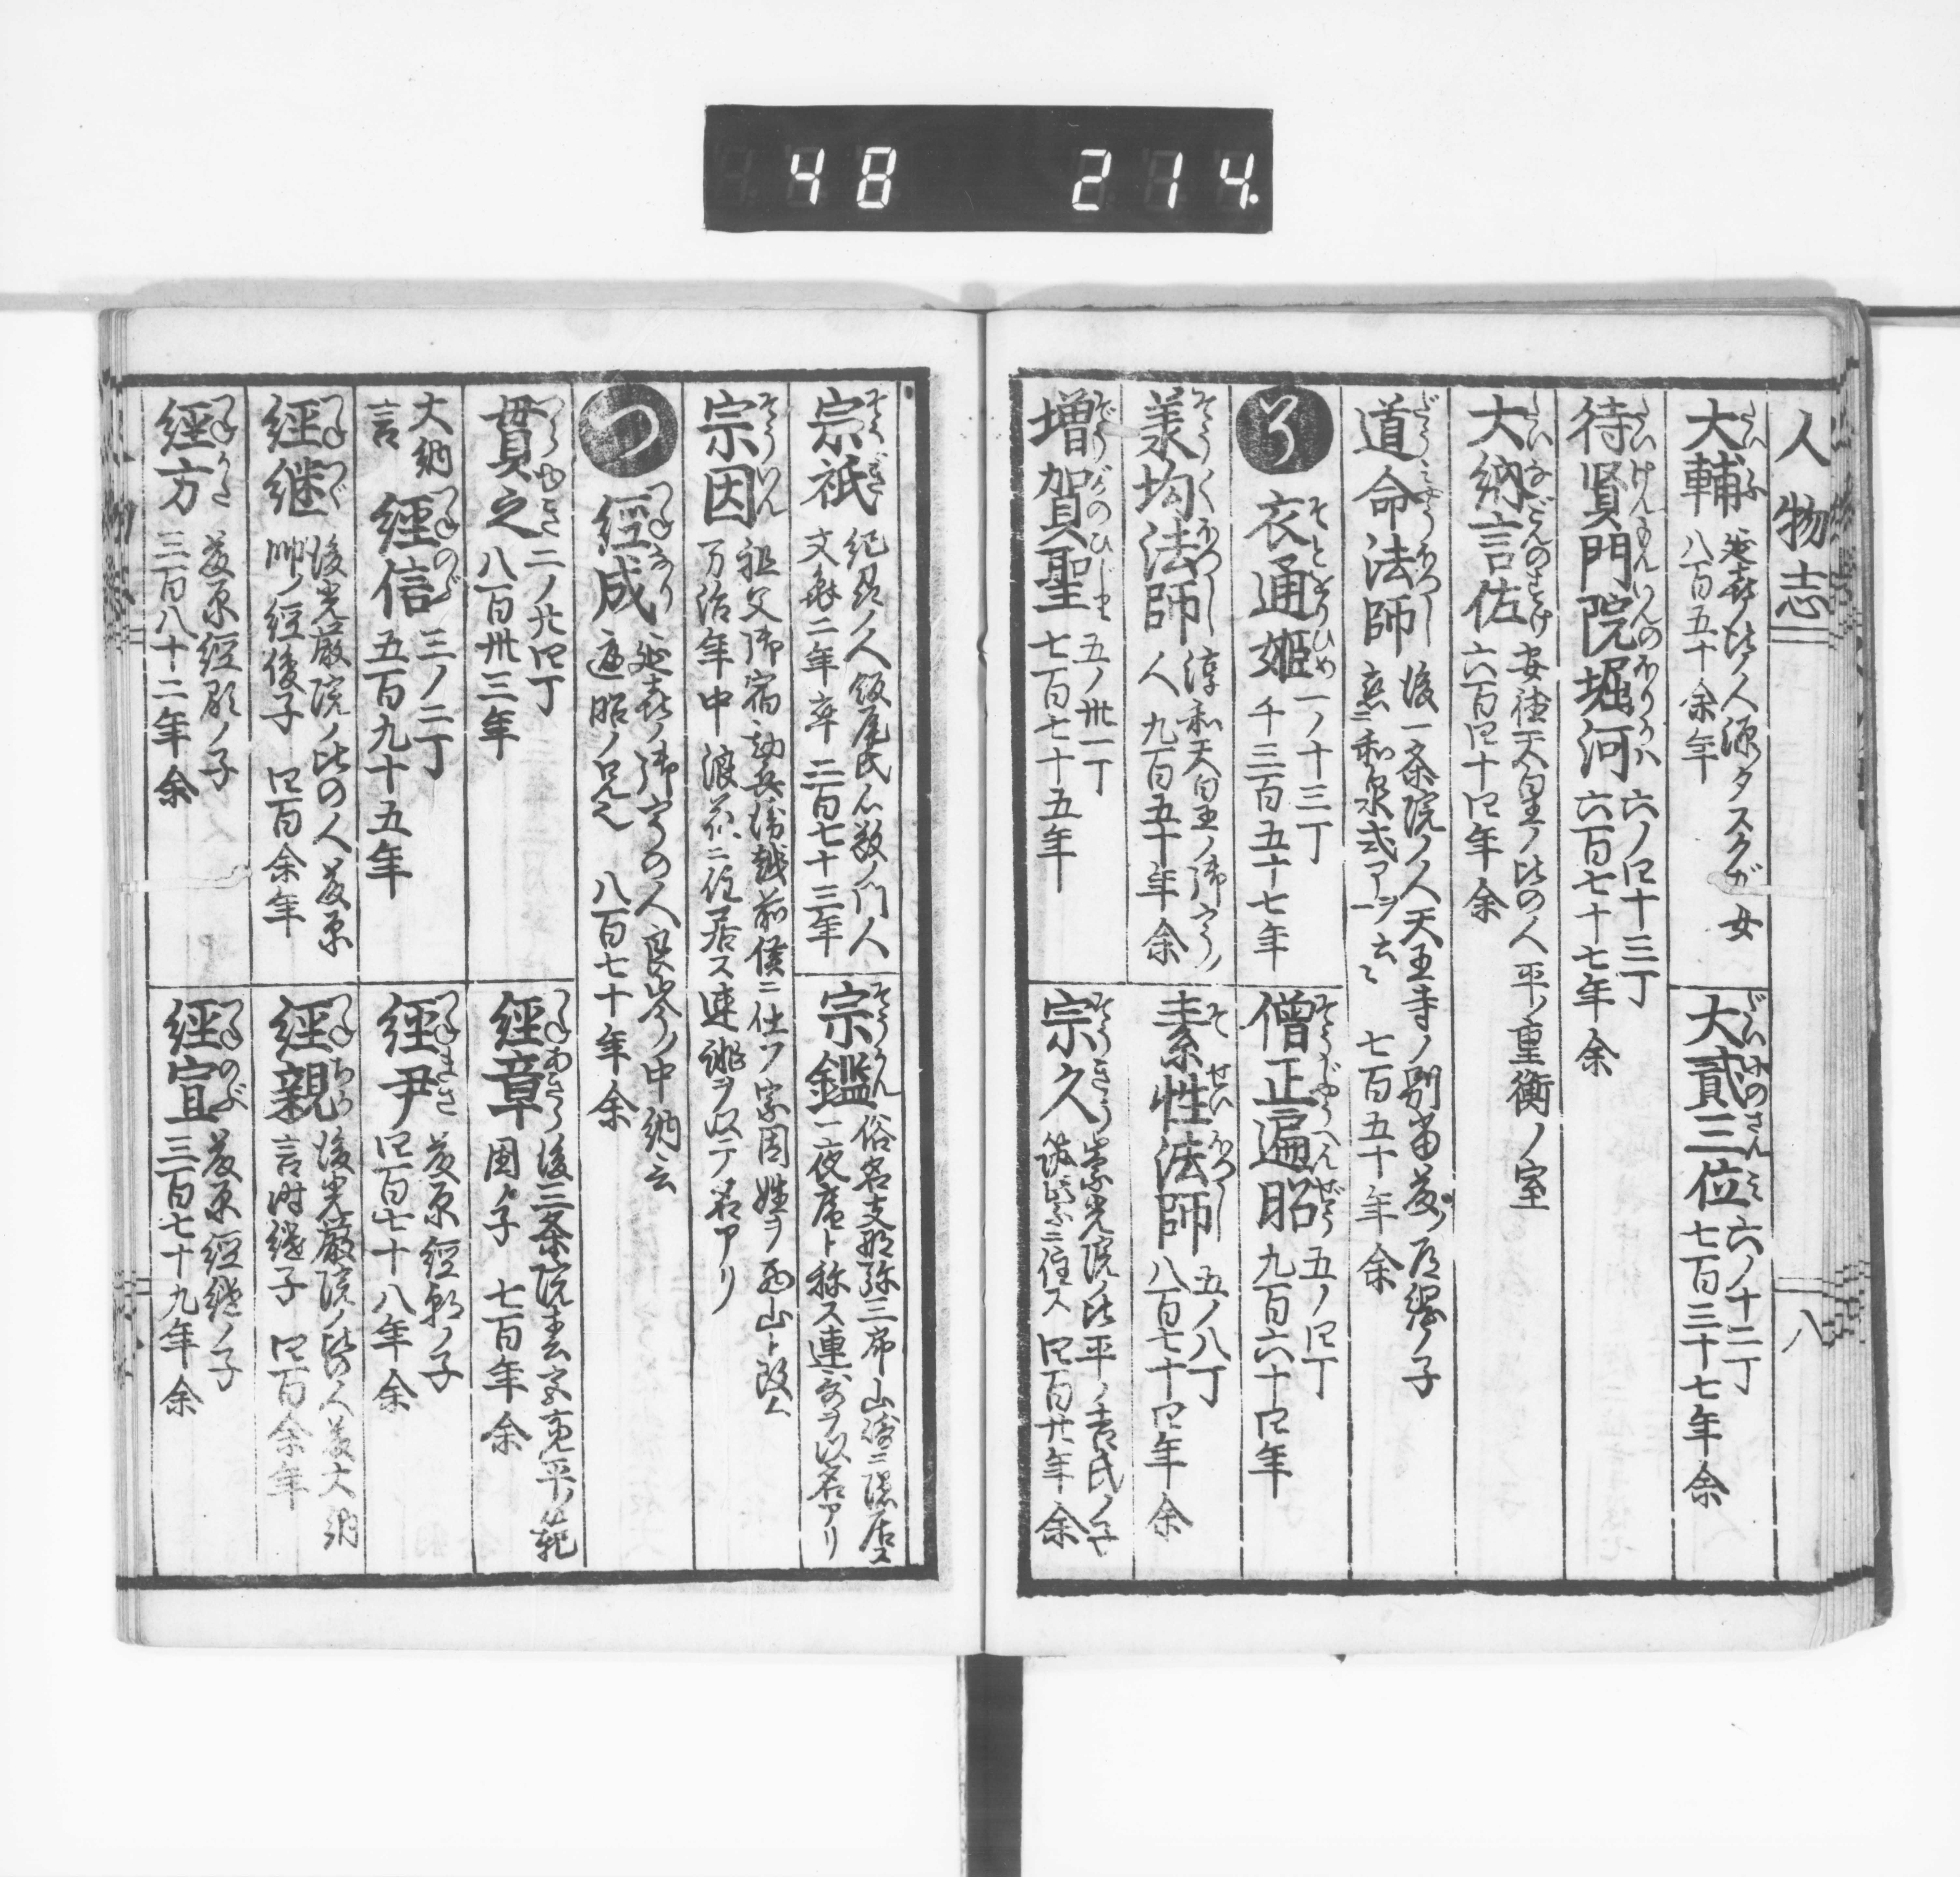 48 214
人物志
八
大輔 延喜ノ比ノ人源タスクガ女
八百五十余年
大貳三位 六ノ十二丁
七百三十七年余
待賢門院堀河 六ノ四十三丁
六百七十七年余
大納言佐 安徳天皇ノ比の人平ノ重衡ノ室
六百四十四年余
道命法師 後一条院ノ人天王寺ノ別當
七百五十年余
そ
衣通姫 一ノ十三丁
千三百五十七年
僧正遍昭 五ノ四丁
九百六十四年
法師 淳和天皇ノ
人 九百五十年余
素性法師 五ノ八丁
八百七十四年余
増賀聖 五ノ卅一丁
七百七十五年
宗久 崇光院ノ比平ノ
筑紫ニ住ス 四百廿年余
宗祇 紀州ノ人飯尾氏心敬ノ門人
文亀二年卒 二百七十三年
宗鑑 俗名支那弥三郎山崎ニ隠居ス
一夜庵ト称ス連哥ヲ以名アリ
宗因 祖父
越前侯ニ仕フ宗因姓ヲ西山ト改ム
万治年中浪花ニ住居ス連誹ヲ以テ名アリ
つ
經成 延喜ノ御宇の人良峯ノ中納云
遍昭ノ兄也 八百七十年余
貫之 二ノ廿四丁
八百卅三年
經章 後三条院
國ガ子 七百年余
大納言
經信 三ノ二丁
五百九十五年
經尹 藤原經朝ノ子
四百七十八年余
經継 後光厳院ノ比の人藤原
帥ノ經俊子 四百余年
經親 後光厳院ノ比の人藤大納
言時継子 四百余年
經方 藤原經ノ子
三百八十二年余
經宣 藤原經継ノ子
三百七十九年余